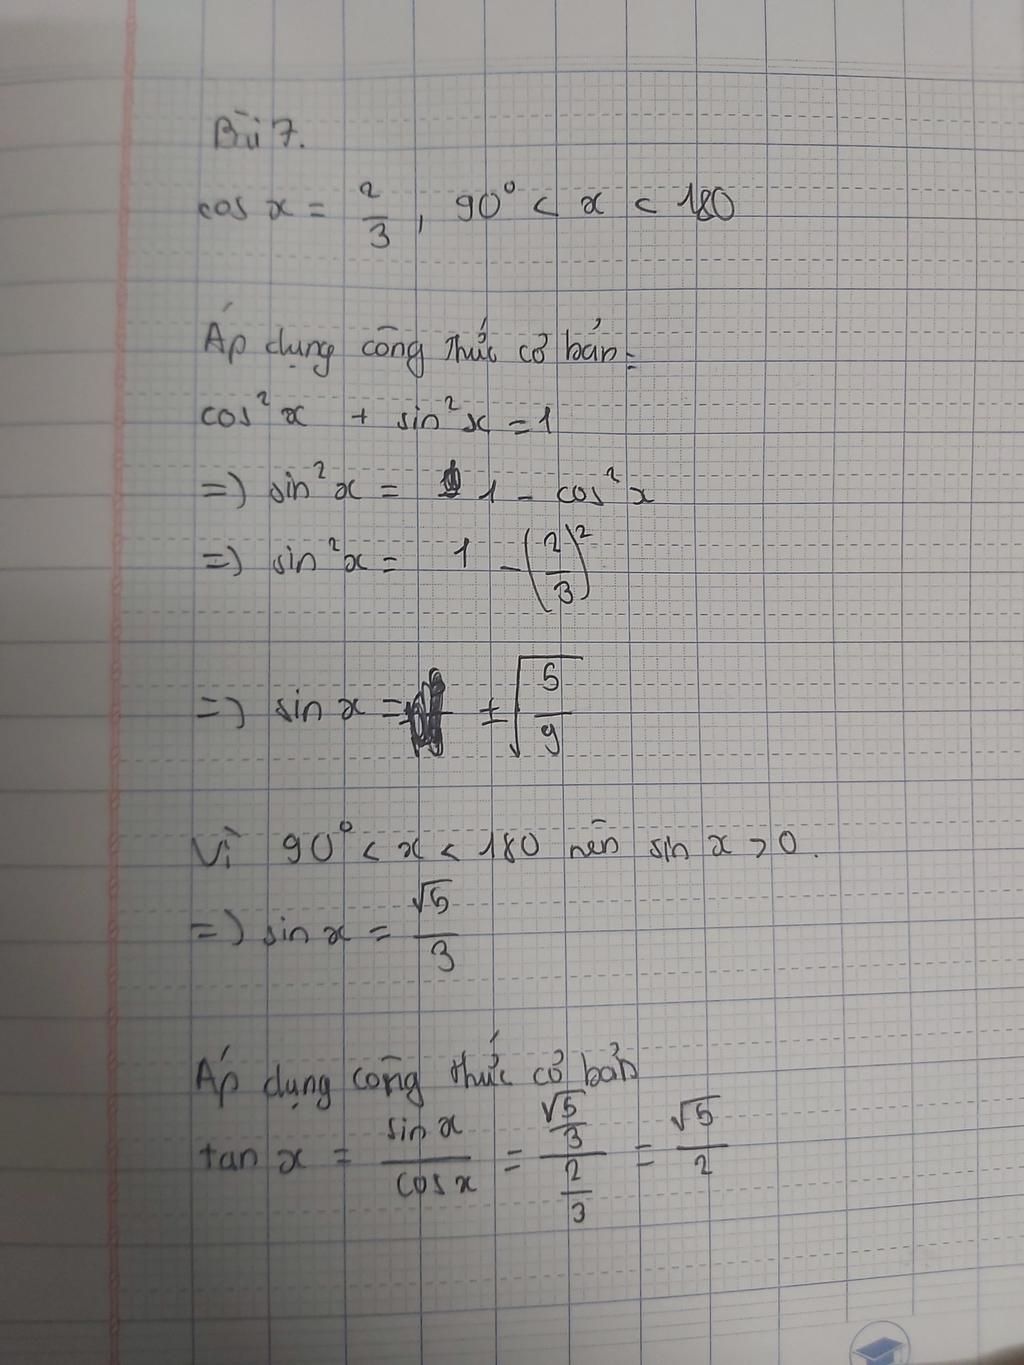 Bài 7.
cos x = 2/3, 90° < x < 180
Áp dụng công thức cơ bản:
cos² x + sin² x = 1
=) sin² x = 1 - cos² x
=) sin² x = 1 - (2/3)²
=) sin x = ± √(5/9)
Vì 90° < x < 180 nên sin x > 0.
=) sin x = √5/3
Áp dụng công thức cơ bản
tan x = sin x/cos x = (√5/3)/(2/3) = √5/2